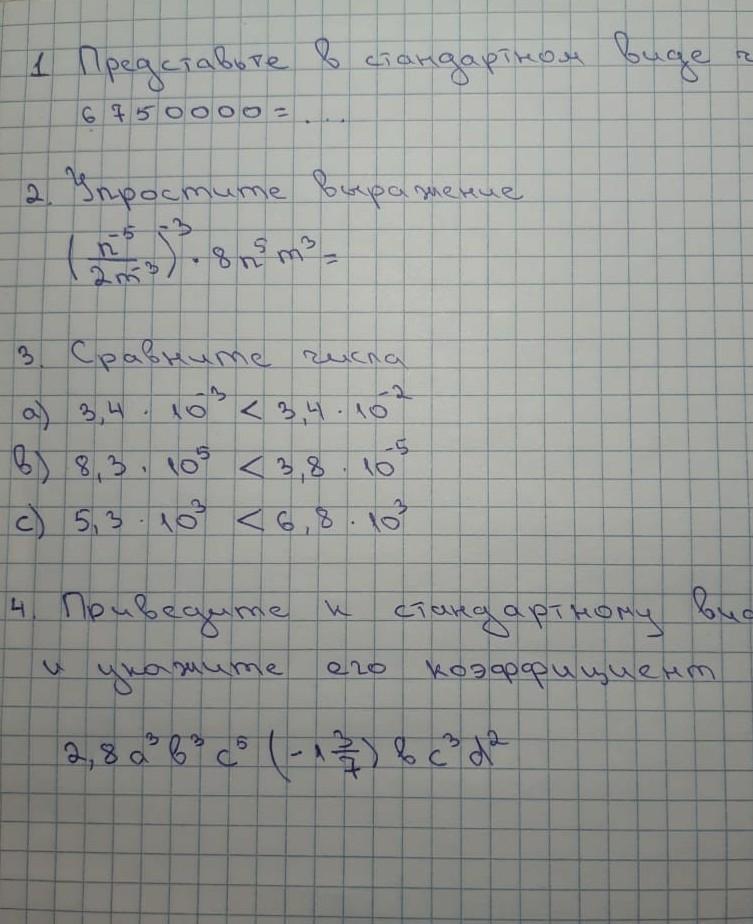 1 Представьте в стандартном виде
6750000=....
2. Упростите выражение
(n⁻⁵/2m⁻³)⁻³ · 8n⁵m³=
3. Сравните числа
а) 3,4 · 10⁻³ < 3,4 · 10⁻²
в) 8,3 · 10⁵ < 3,8 · 10⁻⁵
с) 5,3 · 10³ < 6,8 · 10³
4. Приведите к стандартному вид
и укажите его коэффициент
2,8a³b³c⁵(-1 3/7)bc³d²